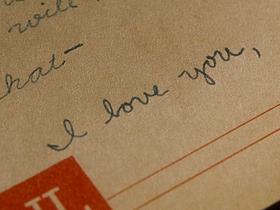 will
hat—
I love you,